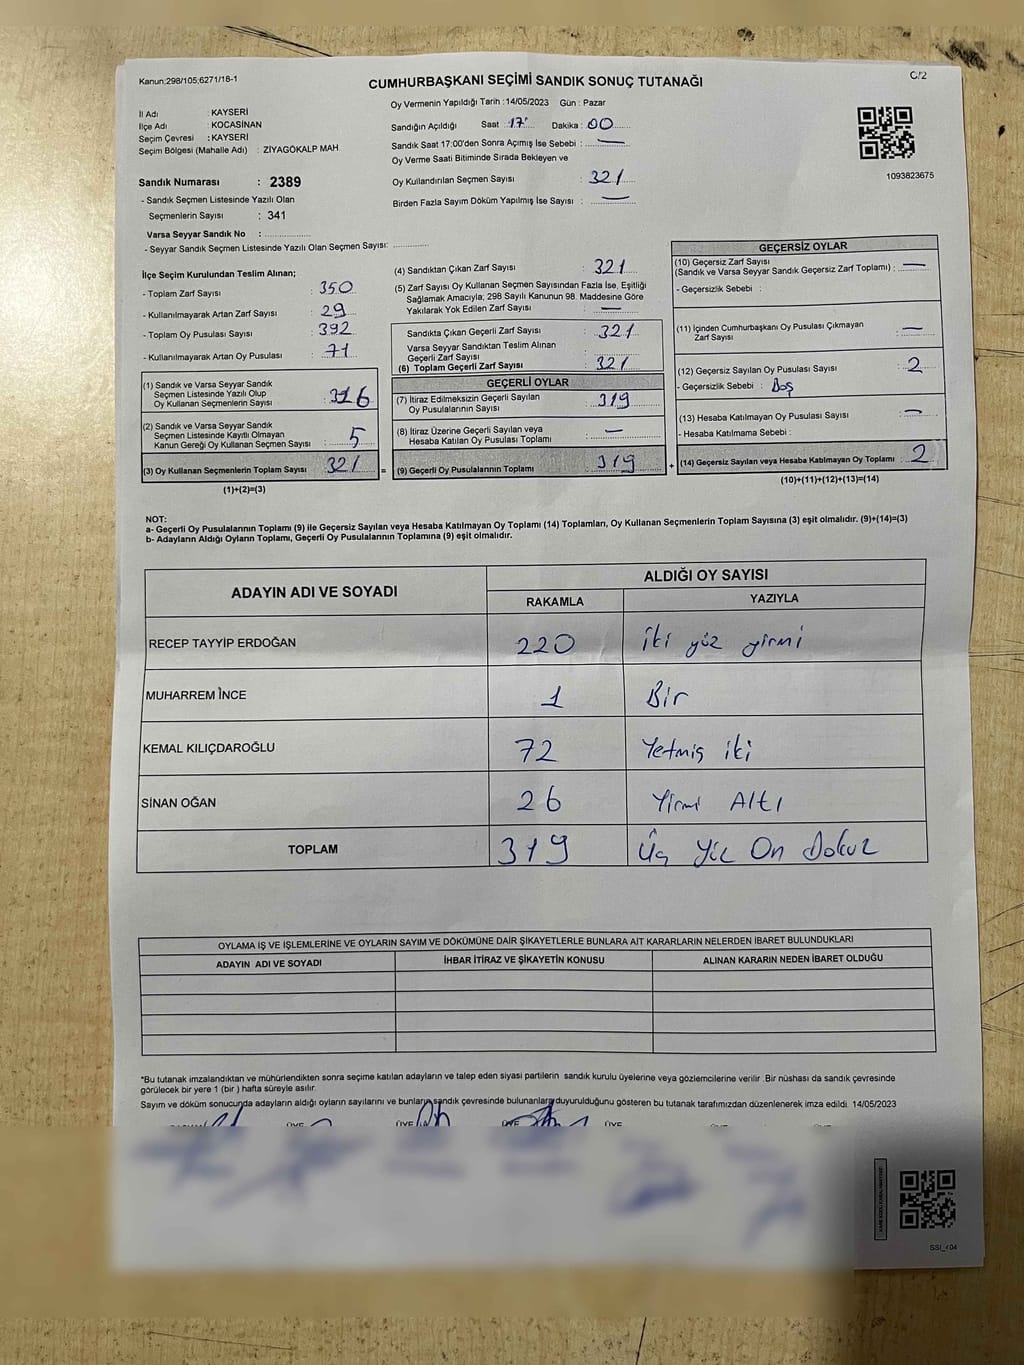 Kanun:298/105;6271/18-1
C/2
CUMHURBAŞKANI SEÇİMİ SANDIK SONUÇ TUTANAĞI
İl Adı : KAYSERİ
İlçe Adı : KOCASİNAN
Seçim Çevresi : KAYSERİ
Seçim Bölgesi (Mahalle Adı) : ZİYAGÖKALP MAH.
Sandık Numarası : 2389
- Sandık Seçmen Listesinde Yazılı Olan
Seçmenlerin Sayısı : 341
Varsa Seyyar Sandık No : ..............
- Seyyar Sandık Seçmen Listesinde Yazılı Olan Seçmen Sayısı: ..............
Oy Vermenin Yapıldığı Tarih : 14/05/2023 Gün : Pazar
Sandığın Açıldığı Saat : 17 Dakika : 00
Sandık Saat 17:00'den Sonra Açımış İse Sebebi : —
Oy Verme Saati Bitiminde Sırada Bekleyen ve
Oy Kullandırılan Seçmen Sayısı : 321
Birden Fazla Sayım Döküm Yapılmış İse Sayısı : —
1093823675
İlçe Seçim Kurulundan Teslim Alınan;
- Toplam Zarf Sayısı : 350
- Kullanılmayarak Artan Zarf Sayısı : 29
- Toplam Oy Pusulası Sayısı : 392
- Kullanılmayarak Artan Oy Pusulası : 71
(1) Sandık ve Varsa Seyyar Sandık
Seçmen Listesinde Yazılı Olup
Oy Kullanan Seçmenlerin Sayısı : 316
(2) Sandık ve Varsa Seyyar Sandık
Seçmen Listesinde Kayıtlı Olmayan
Kanun Gereği Oy Kullanan Seçmen Sayısı : 5
(3) Oy Kullanan Seçmenlerin Toplam Sayısı 321 =
(1)+(2)=(3)
(4) Sandıktan Çıkan Zarf Sayısı : 321
(5) Zarf Sayısı Oy Kullanan Seçmen Sayısından Fazla İse, Eşitliği
Sağlamak Amacıyla; 298 Sayılı Kanunun 98. Maddesine Göre
Yakılarak Yok Edilen Zarf Sayısı : —
Sandıkta Çıkan Geçerli Zarf Sayısı : 321
Varsa Seyyar Sandıktan Teslim Alınan
Geçerli Zarf Sayısı :
(6) Toplam Geçerli Zarf Sayısı : 321
GEÇERLİ OYLAR
(7) İtiraz Edilmeksizin Geçerli Sayılan
Oy Pusulalarının Sayısı : 319
(8) İtiraz Üzerine Geçerli Sayılan veya
Hesaba Katılan Oy Pusulası Toplamı : —
(9) Geçerli Oy Pusulalarının Toplamı 319 +
GEÇERSİZ OYLAR
(10) Geçersiz Zarf Sayısı
(Sandık ve Varsa Seyyar Sandık Geçersiz Zarf Toplamı) : —
- Geçersizlik Sebebi :
(11) İçinden Cumhurbaşkanı Oy Pusulası Çıkmayan
Zarf Sayısı : —
(12) Geçersiz Sayılan Oy Pusulası Sayısı : 2
- Geçersizlik Sebebi : Boş
(13) Hesaba Katılmayan Oy Pusulası Sayısı : —
- Hesaba Katılmama Sebebi :
(14) Geçersiz Sayılan veya Hesaba Katılmayan Oy Toplamı : 2
(10)+(11)+(12)+(13)=(14)
NOT:
a- Geçerli Oy Pusulalarının Toplamı (9) ile Geçersiz Sayılan veya Hesaba Katılmayan Oy Toplamı (14) Toplamları, Oy Kullanan Seçmenlerin Toplam Sayısına (3) eşit olmalıdır. (9)+(14)=(3)
b- Adayların Aldığı Oyların Toplamı, Geçerli Oy Pusulalarının Toplamına (9) eşit olmalıdır.
ADAYIN ADI VE SOYADI
ALDIĞI OY SAYISI
RAKAMLA YAZIYLA
RECEP TAYYİP ERDOĞAN 220 İki yüz yirmi
MUHARREM İNCE 1 Bir
KEMAL KILIÇDAROĞLU 72 Yetmiş iki
SİNAN OĞAN 26 Yirmi Altı
TOPLAM 319 Üç Yüz On Dokuz
OYLAMA İŞ VE İŞLEMLERİNE VE OYLARIN SAYIM VE DÖKÜMÜNE DAİR ŞİKAYETLERLE BUNLARA AİT KARARLARIN NELERDEN İBARET BULUNDUKLARI
ADAYIN ADI VE SOYADI İHBAR İTİRAZ VE ŞİKAYETİN KONUSU ALINAN KARARIN NEDEN İBARET OLDUĞU
*Bu tutanak imzalandıktan ve mühürlendikten sonra seçime katılan adayların ve talep eden siyasi partilerin sandık kurulu üyelerine veya gözlemcilerine verilir .Bir nüshası da sandık çevresinde
görülecek bir yere 1 (bir ) hafta süreyle asılır.
Sayım ve döküm sonucunda adayların aldığı oyların sayılarını ve bunların sandık çevresinde bulunanlara duyurulduğunu gösteren bu tutanak tarafımızdan düzenlenerek imza edildi. 14/05/2023
ÜYE ÜYE ÜYE ÜYE